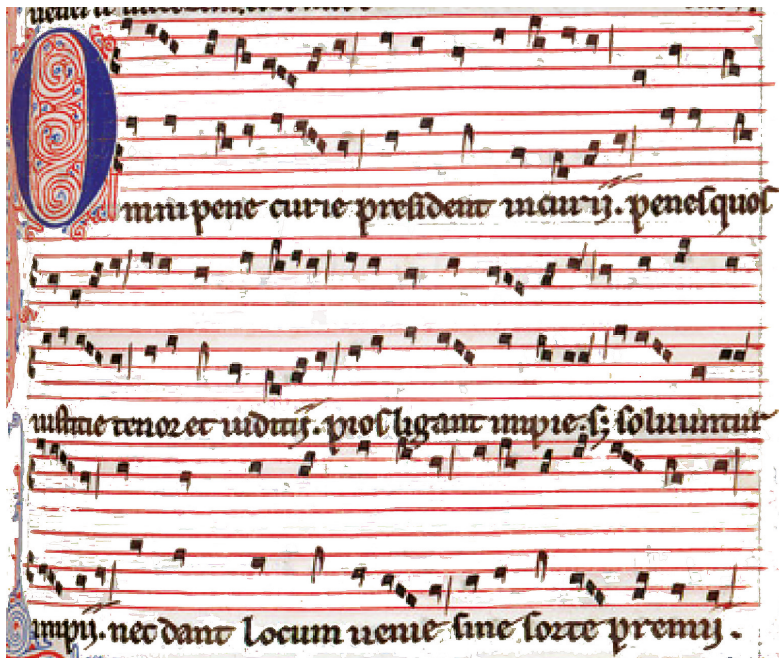 Omni pene curie president incurij. penes quos
iusticie tenor et iuditij. pros ligant impie. s; soluuntur
impij. nec dant locum uenie sine sorte premij.